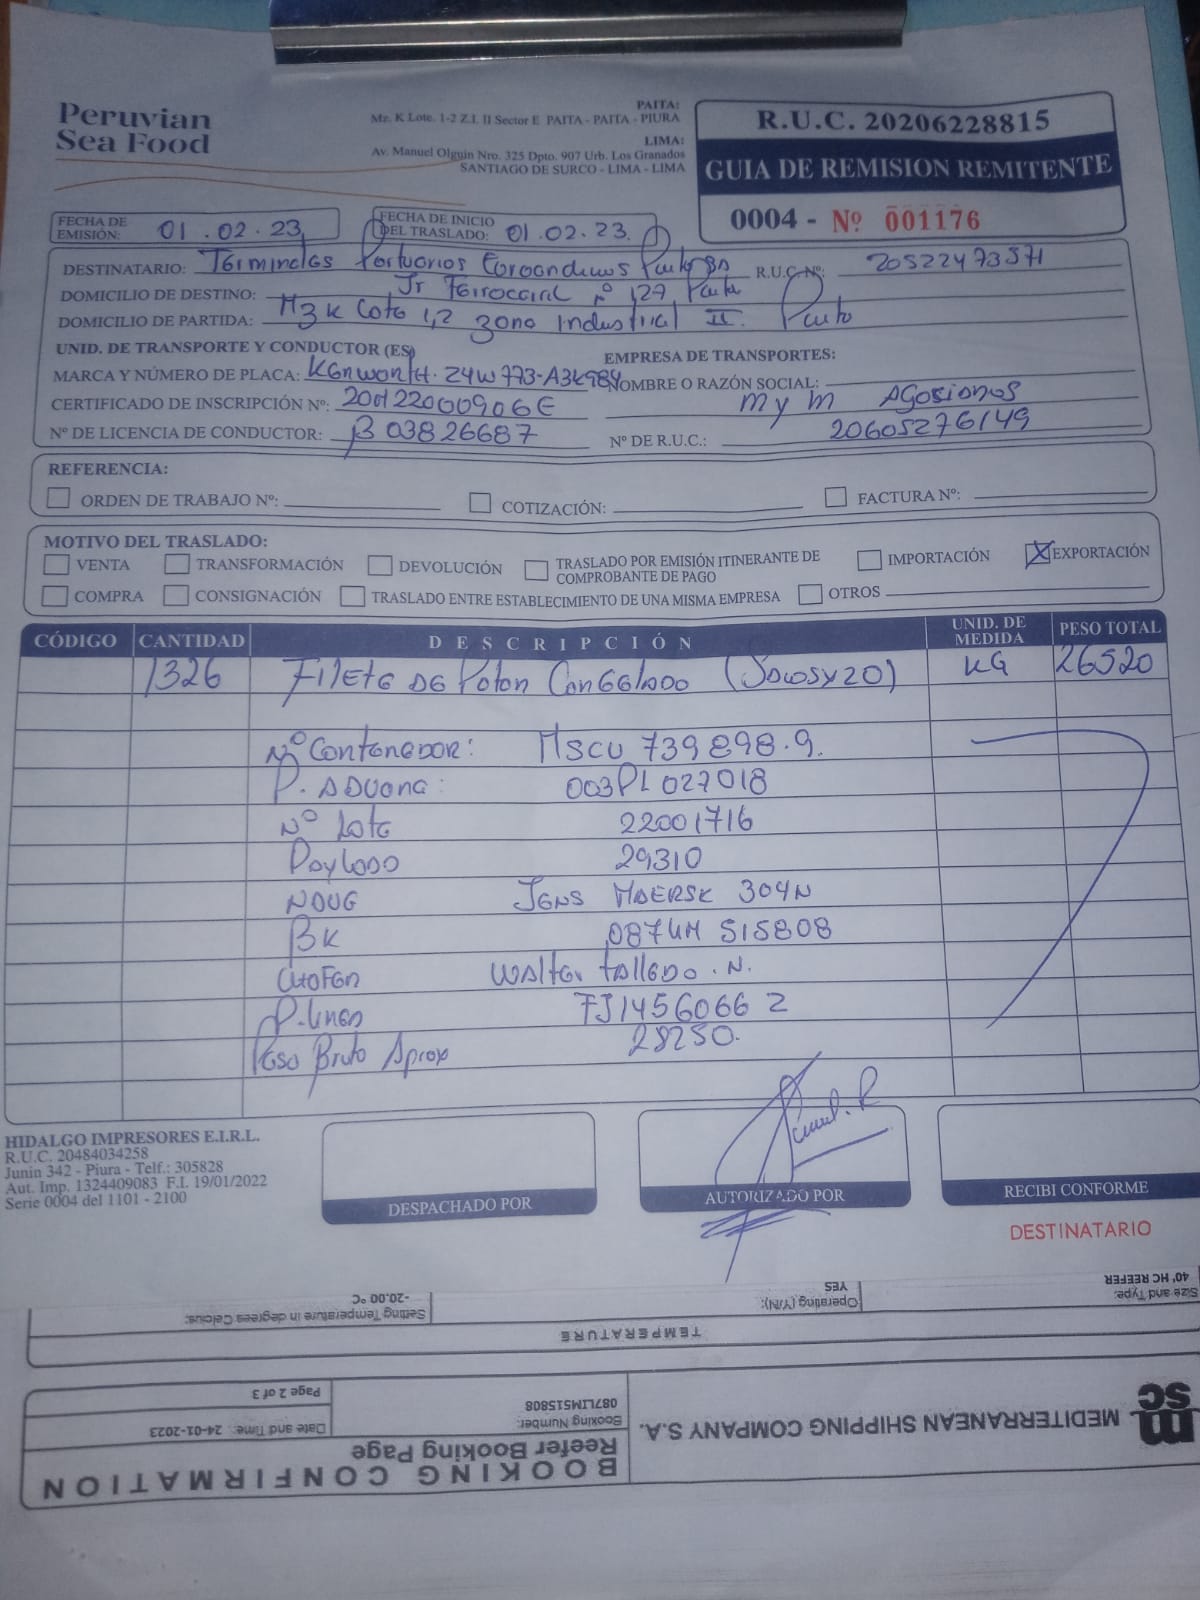 Peruvian
Sea Food
PAITA:
Mz. K Lote. 1-2 Z.I. II Sector E PAITA - PAITA - PIURA
LIMA:
Av. Manuel Olguin Nro. 325 Dpto. 907 Urb. Los Granados
SANTIAGO DE SURCO - LIMA - LIMA
R.U.C. 20206228815
GUIA DE REMISION REMITENTE
0004 - Nº 001176
FECHA DE EMISIÓN: 01.02.23
FECHA DE INICIO DEL TRASLADO: 01.02.23.
DESTINATARIO: Terminales Portuarios Euroandinos Paita SA R.U.C. Nº: 20522473571
DOMICILIO DE DESTINO: Jr Ferrocarril nº 127 Paita
DOMICILIO DE PARTIDA: Mz K Lote 1,2 Zona Industrial II. Paita
UNID. DE TRANSPORTE Y CONDUCTOR (ES)
EMPRESA DE TRANSPORTES:
MARCA Y NÚMERO DE PLACA: Kenworth. Z4W773-A3K984
NOMBRE O RAZÓN SOCIAL: M y M Agosinos
CERTIFICADO DE INSCRIPCIÓN Nº: 200122000906E
Nº DE LICENCIA DE CONDUCTOR: B 03826687
Nº DE R.U.C.: 20605276149
REFERENCIA:
ORDEN DE TRABAJO Nº: COTIZACIÓN: FACTURA Nº:
MOTIVO DEL TRASLADO:
VENTA TRANSFORMACIÓN DEVOLUCIÓN TRASLADO POR EMISIÓN ITINERANTE DE COMPROBANTE DE PAGO IMPORTACIÓN X EXPORTACIÓN
COMPRA CONSIGNACIÓN TRASLADO ENTRE ESTABLECIMIENTO DE UNA MISMA EMPRESA OTROS
CÓDIGO CANTIDAD DESCRIPCIÓN UNID. DE MEDIDA PESO TOTAL
1326 Filete de Poton Congelado (Sacos x 20) KG 26520
Nº Contenedor: MSCU 739898.9.
P. Aduana: 003PL027018
Nº Lote 22001716
Payload 29310
Nave Jens Maersk 304N
BK 087LIM 515808
Chofer Walter Talledo. N.
P. linea FJ14560662
Peso Bruto Aprox 28250.
HIDALGO IMPRESORES E.I.R.L.
R.U.C. 20484034258
Junin 342 - Piura - Telf.: 305828
Aut. Imp. 1324409083 F.I. 19/01/2022
Serie 0004 del 1101 - 2100
DESPACHADO POR
AUTORIZADO POR
RECIBI CONFORME
DESTINATARIO
BOOKING CONFIRMATION
Reefer Booking Page
MSC
MEDITERRANEAN SHIPPING COMPANY S.A.
Booking Number:
087LIM515808
Date and Time: 24-01-2023
Page 2 of 3
TEMPERATURE
Size and Type:
40' HC REEFER
Operating (Y/N):
YES
Setting Temperature in degrees Celcius:
-20.00 °C